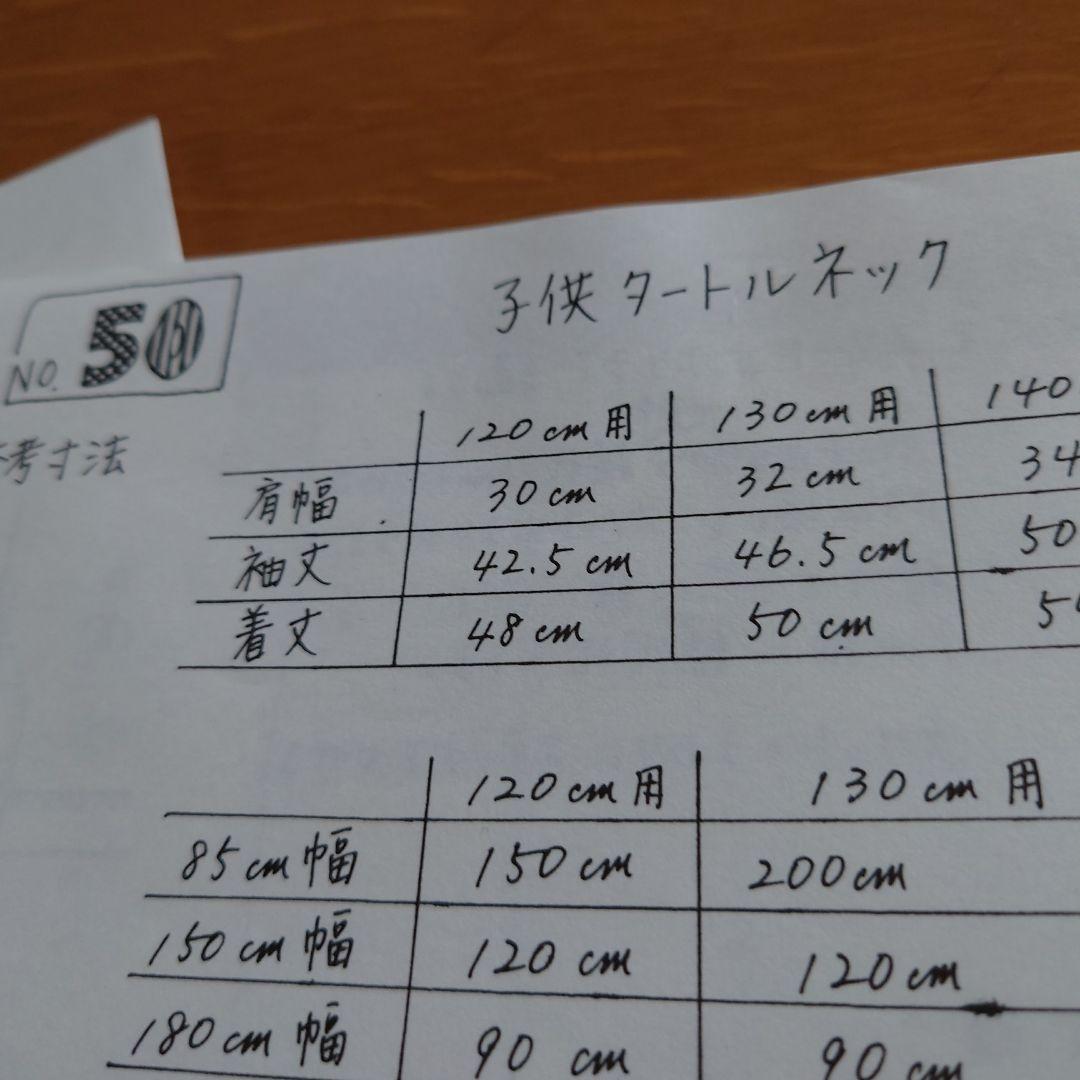 子供タートルネック
NO. 50
考寸法
120cm用 130cm用 140
肩幅 30cm 32cm 34
袖丈 42.5cm 46.5cm 50
着丈 48cm 50cm
120cm用 130cm用
85cm幅 150cm 200cm
150cm幅 120cm 120cm
180cm幅 90cm 90cm